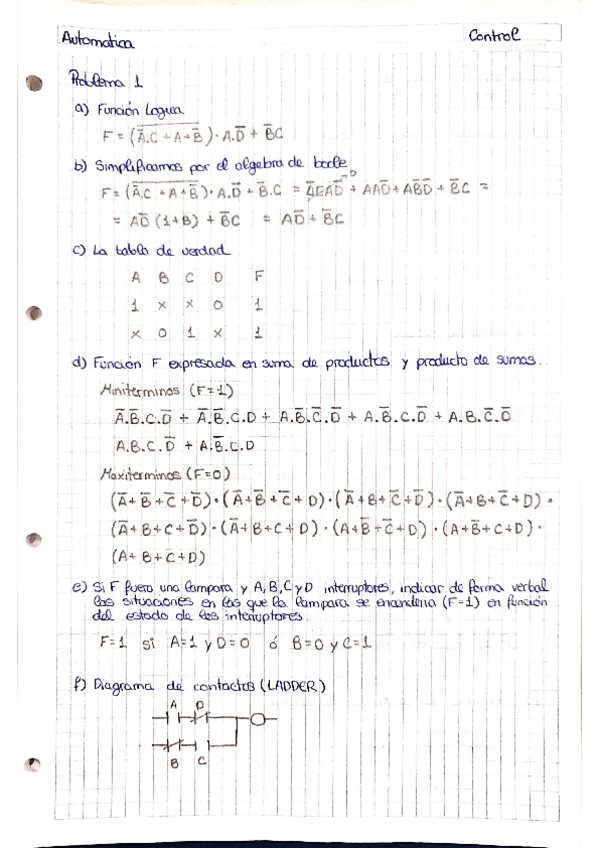 Automatica Control
Problema 1
a) Función Logica
F = (\overline{\overline{A}.C + A + \overline{B}}) · A.\overline{D} + \overline{B}C
b) Simplificamos por el algebra de boole
F = (\overline{\overline{A}.C + A + \overline{B}}) · A.\overline{D} + \overline{B}.C = \overline{A}CA\overline{D}→0 + AA\overline{D} + A\overline{B}\overline{D} + \overline{B}C =
= A\overline{D} (1+B) + \overline{B}C = A\overline{D} + \overline{B}C
c) La tabla de verdad
A B C D F
1 x x 0 1
x 0 1 x 1
d) Función F expresada en suma de productos y producto de sumas.
Miniterminos (F=1)
\overline{A}.\overline{B}.C.\overline{D} + \overline{A}.\overline{B}.C.D + A.\overline{B}.\overline{C}.\overline{D} + A.\overline{B}.C.\overline{D} + A.B.\overline{C}.\overline{D}
A.B.C.\overline{D} + A.\overline{B}.C.D
Maxiterminos (F=0)
e) Si F fuera una lampara y A, B, C y D interruptores, indicar de forma verbal
las situaciones en las que la lampara se encenderia (F=1) en función
del estado de los interruptores.
F=1 si A=1 y D=0 ó B=0 y C=1
f) Diagrama de contactos (LADDER)
A D
B C